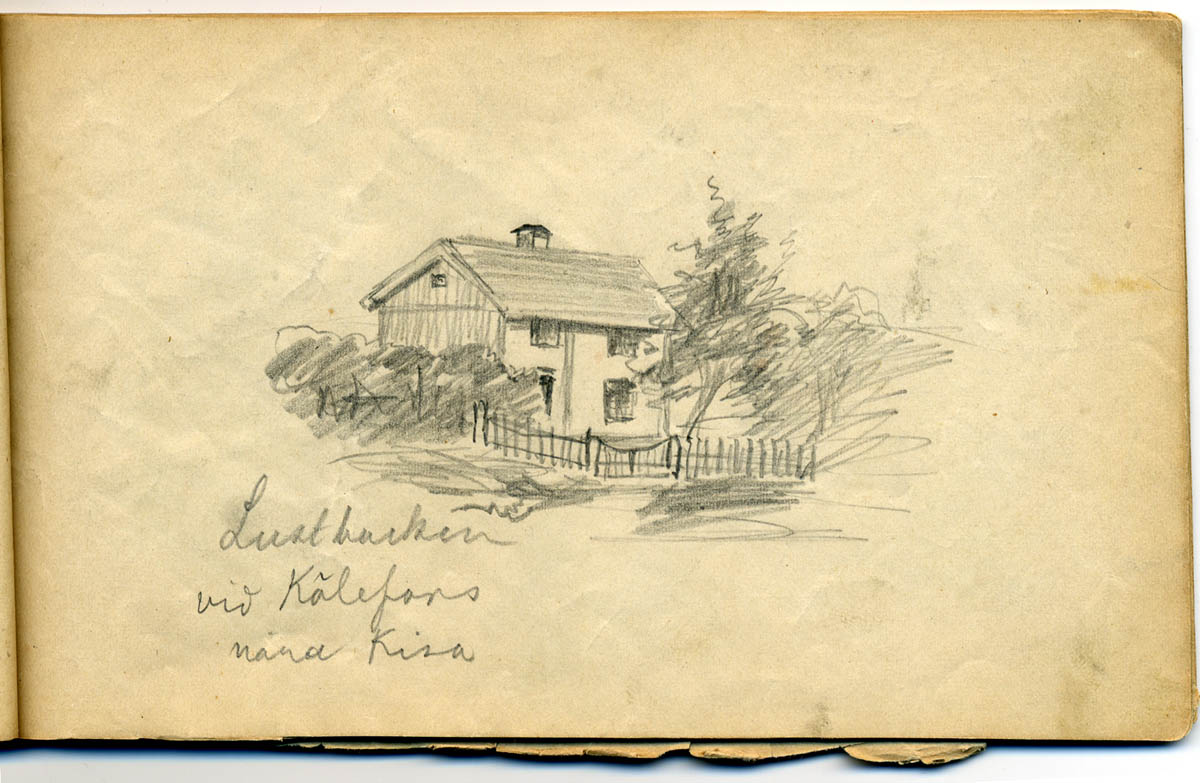 Lustbacken
vid Kölefors
nära Kisa